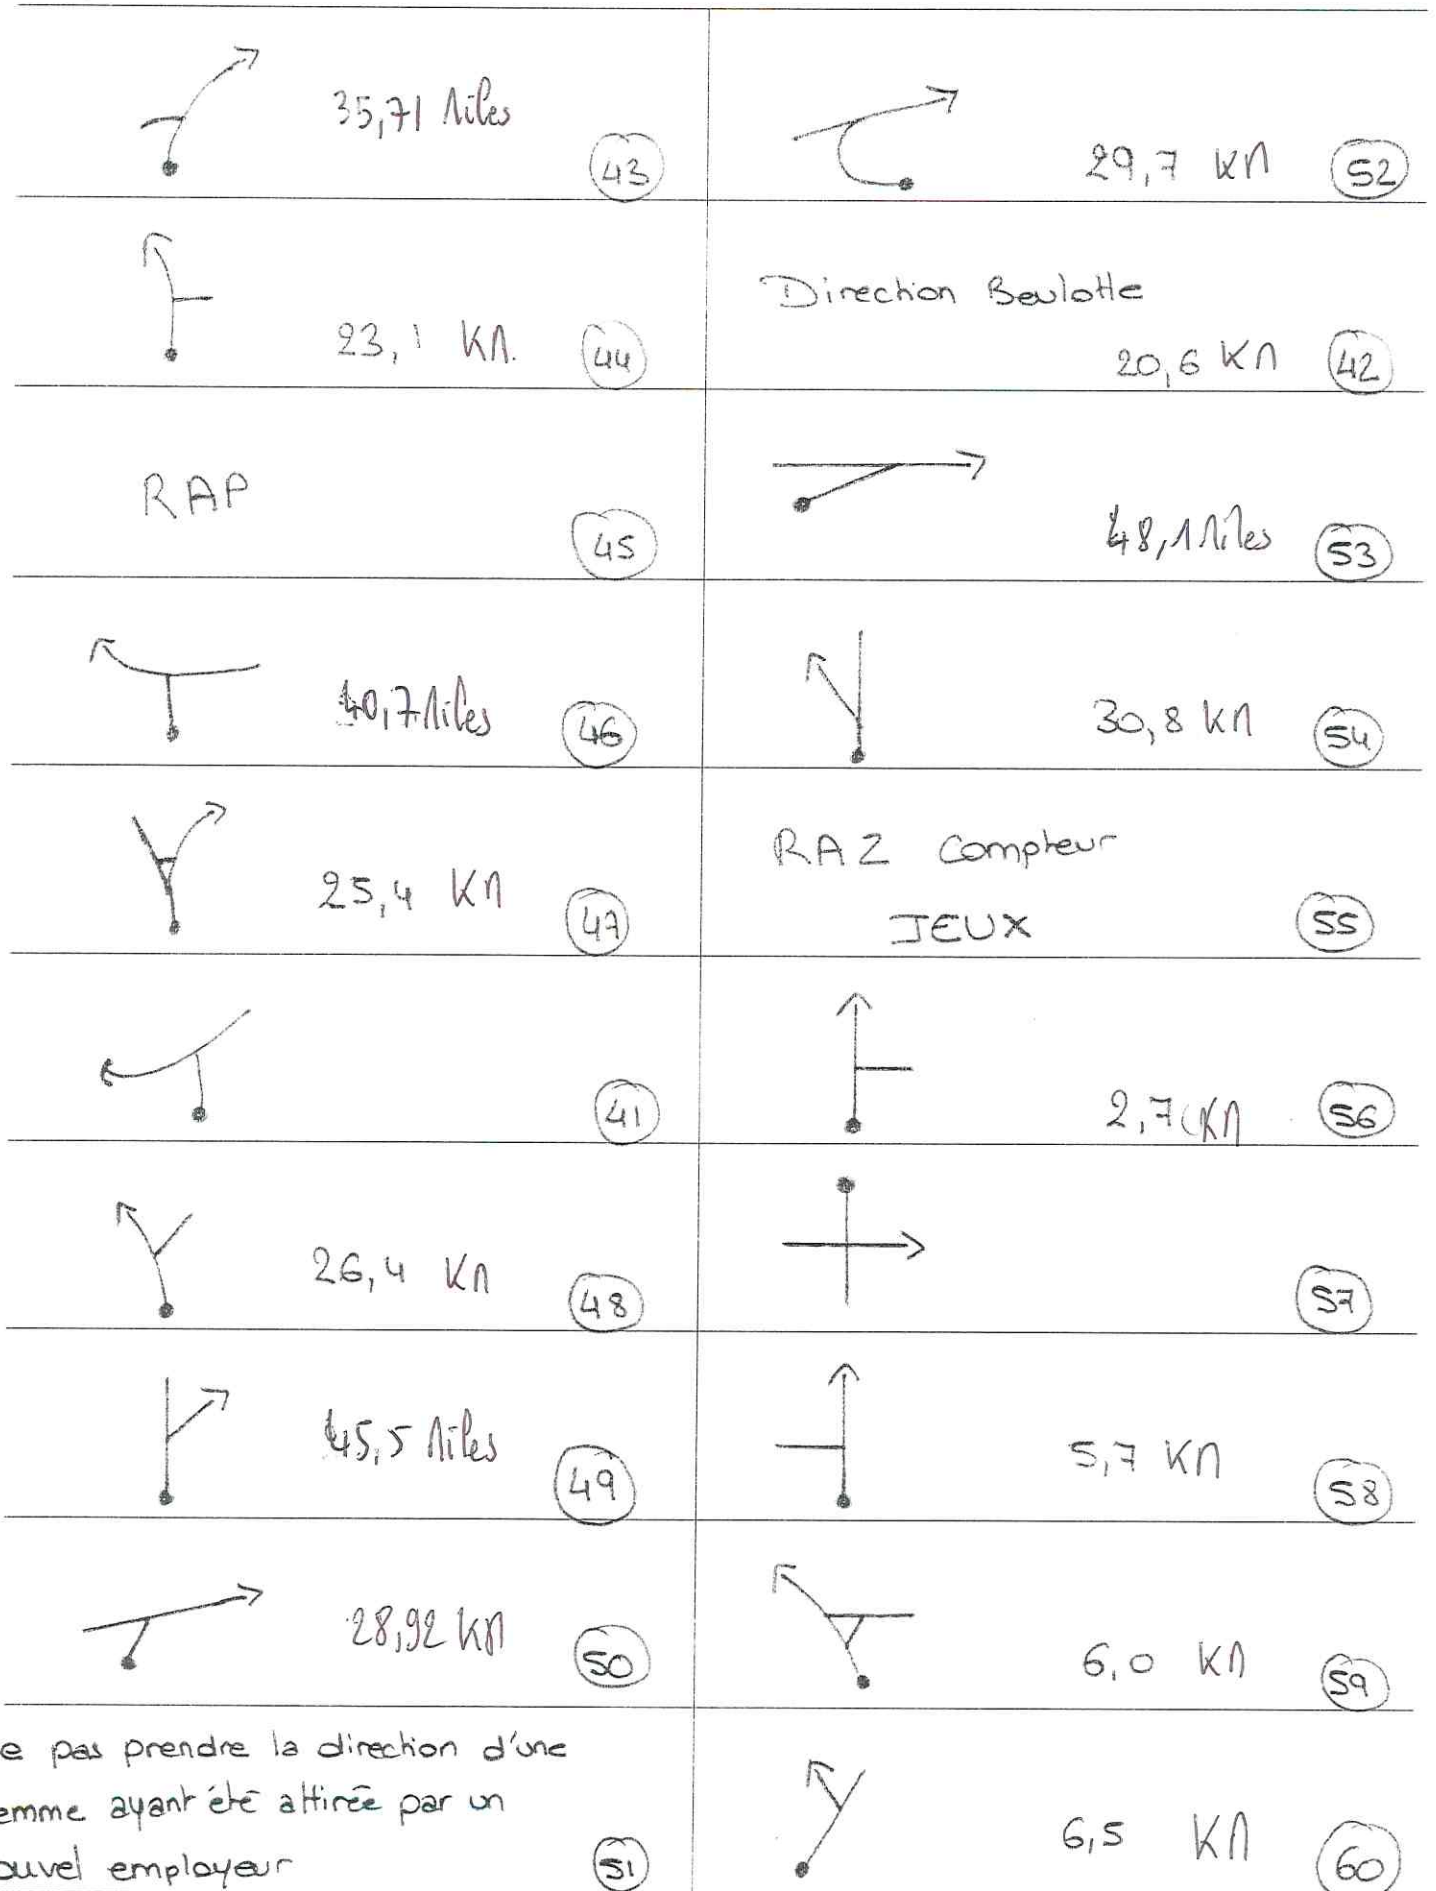 35,71 Miles
43
23,1 KM.
44
RAP
45
40,7 Miles
46
25,4 KM
47
41
26,4 KM
48
45,5 Miles
49
28,92 KM
50
e pas prendre la direction d'une
emme ayant été attirée par un
ouvel employeur
51
29,7 KM
52
Direction Beulotte
20,6 KM
42
48,1 Miles
53
30,8 KM
54
RAZ Compteur
JEUX
55
2,7 KM
56
57
5,7 KM
58
6,0 KM
59
6,5 KM
60